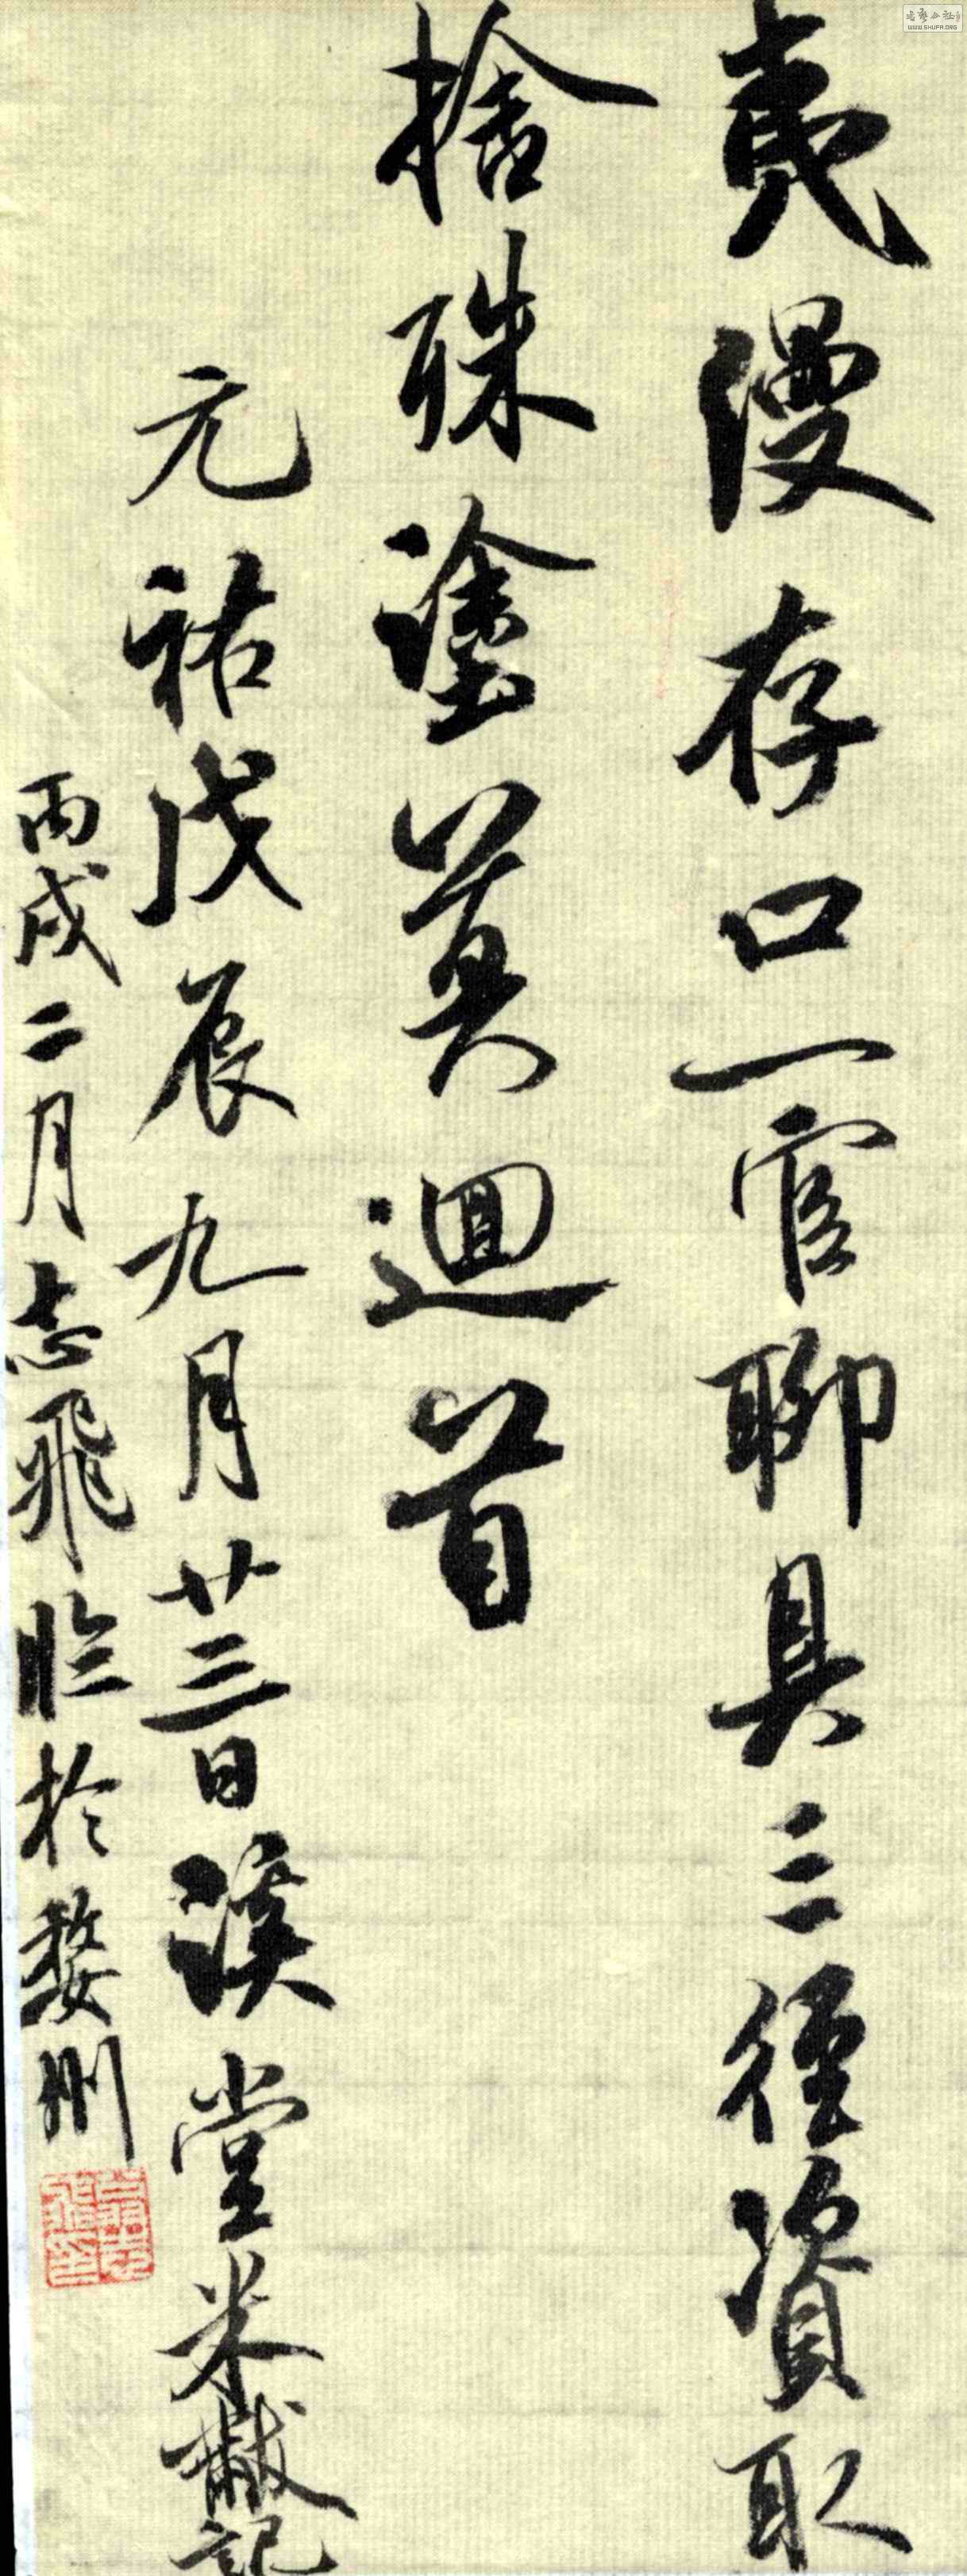 夷漫存口一官聊具三徑資取
捨殊塗莫迴首
元祐戊辰九月廿三日溪堂米黻記
丙戌二月志飛臨於婺州
WWW.SHUFA.ORG